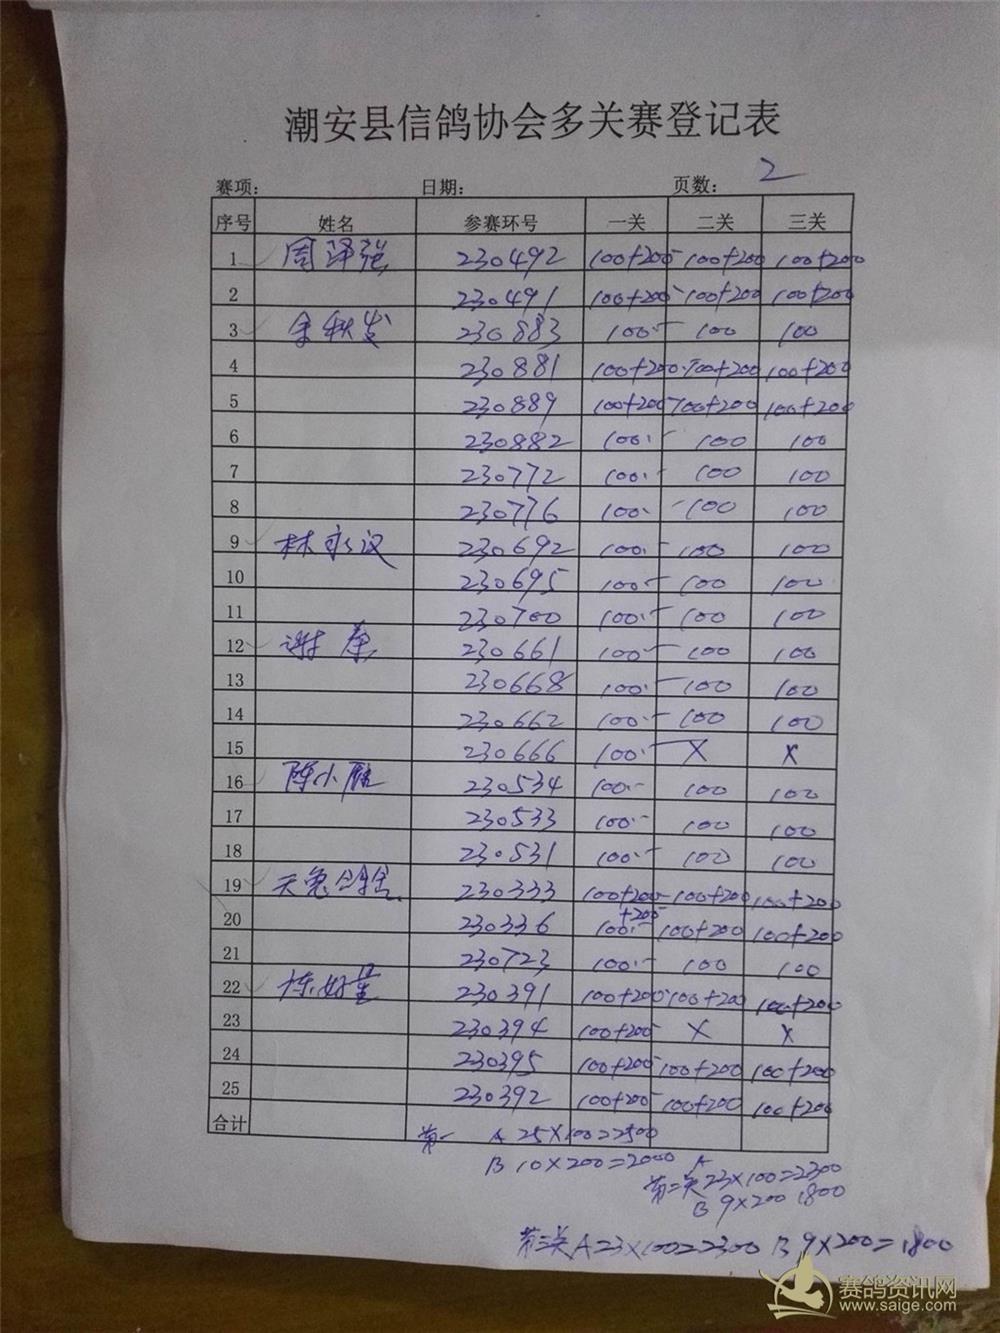 潮安县信鸽协会多关赛登记表
赛项: 日期: 页数: 2
序号 姓名 参赛环号 一关 二关 三关
1 周泽强 230492 100+200 100+200 100+200
2 230491 100+200 100+200 100+200
3 余秋发 230883 100 100 100
4 230881 100+200 100+200 100+200
5 230889 100+200 100+200 100+200
6 230882 100 100 100
7 230772 100 100 100
8 230776 100 100 100
9 林永汉 230692 100 100 100
10 230695 100 100 100
11 230700 100 100 100
12 谢 230661 100 100 100
13 230668 100 100 100
14 230662 100 100 100
15 230666 100 X X
16 陈小 230534 100 100 100
17 230533 100 100 100
18 230531 100 100 100
19 230333 100+200 100+200 100+200
20 230336 100+200 100+200 100+200
21 230723 100 100 100
22 230391 100+200 100+200 100+200
23 230394 100+200 X X
24 230395 100+200 100+200 100+200
25 230392 100+200 100+200 100+200
合计
第一 A 25×100=2500
B 10×200=2000
第二关 A 23×100=2300
B 9×200 1800
第三关 A 23×100=2300 B 9×200=1800
赛鸽资讯网
www.saige.com